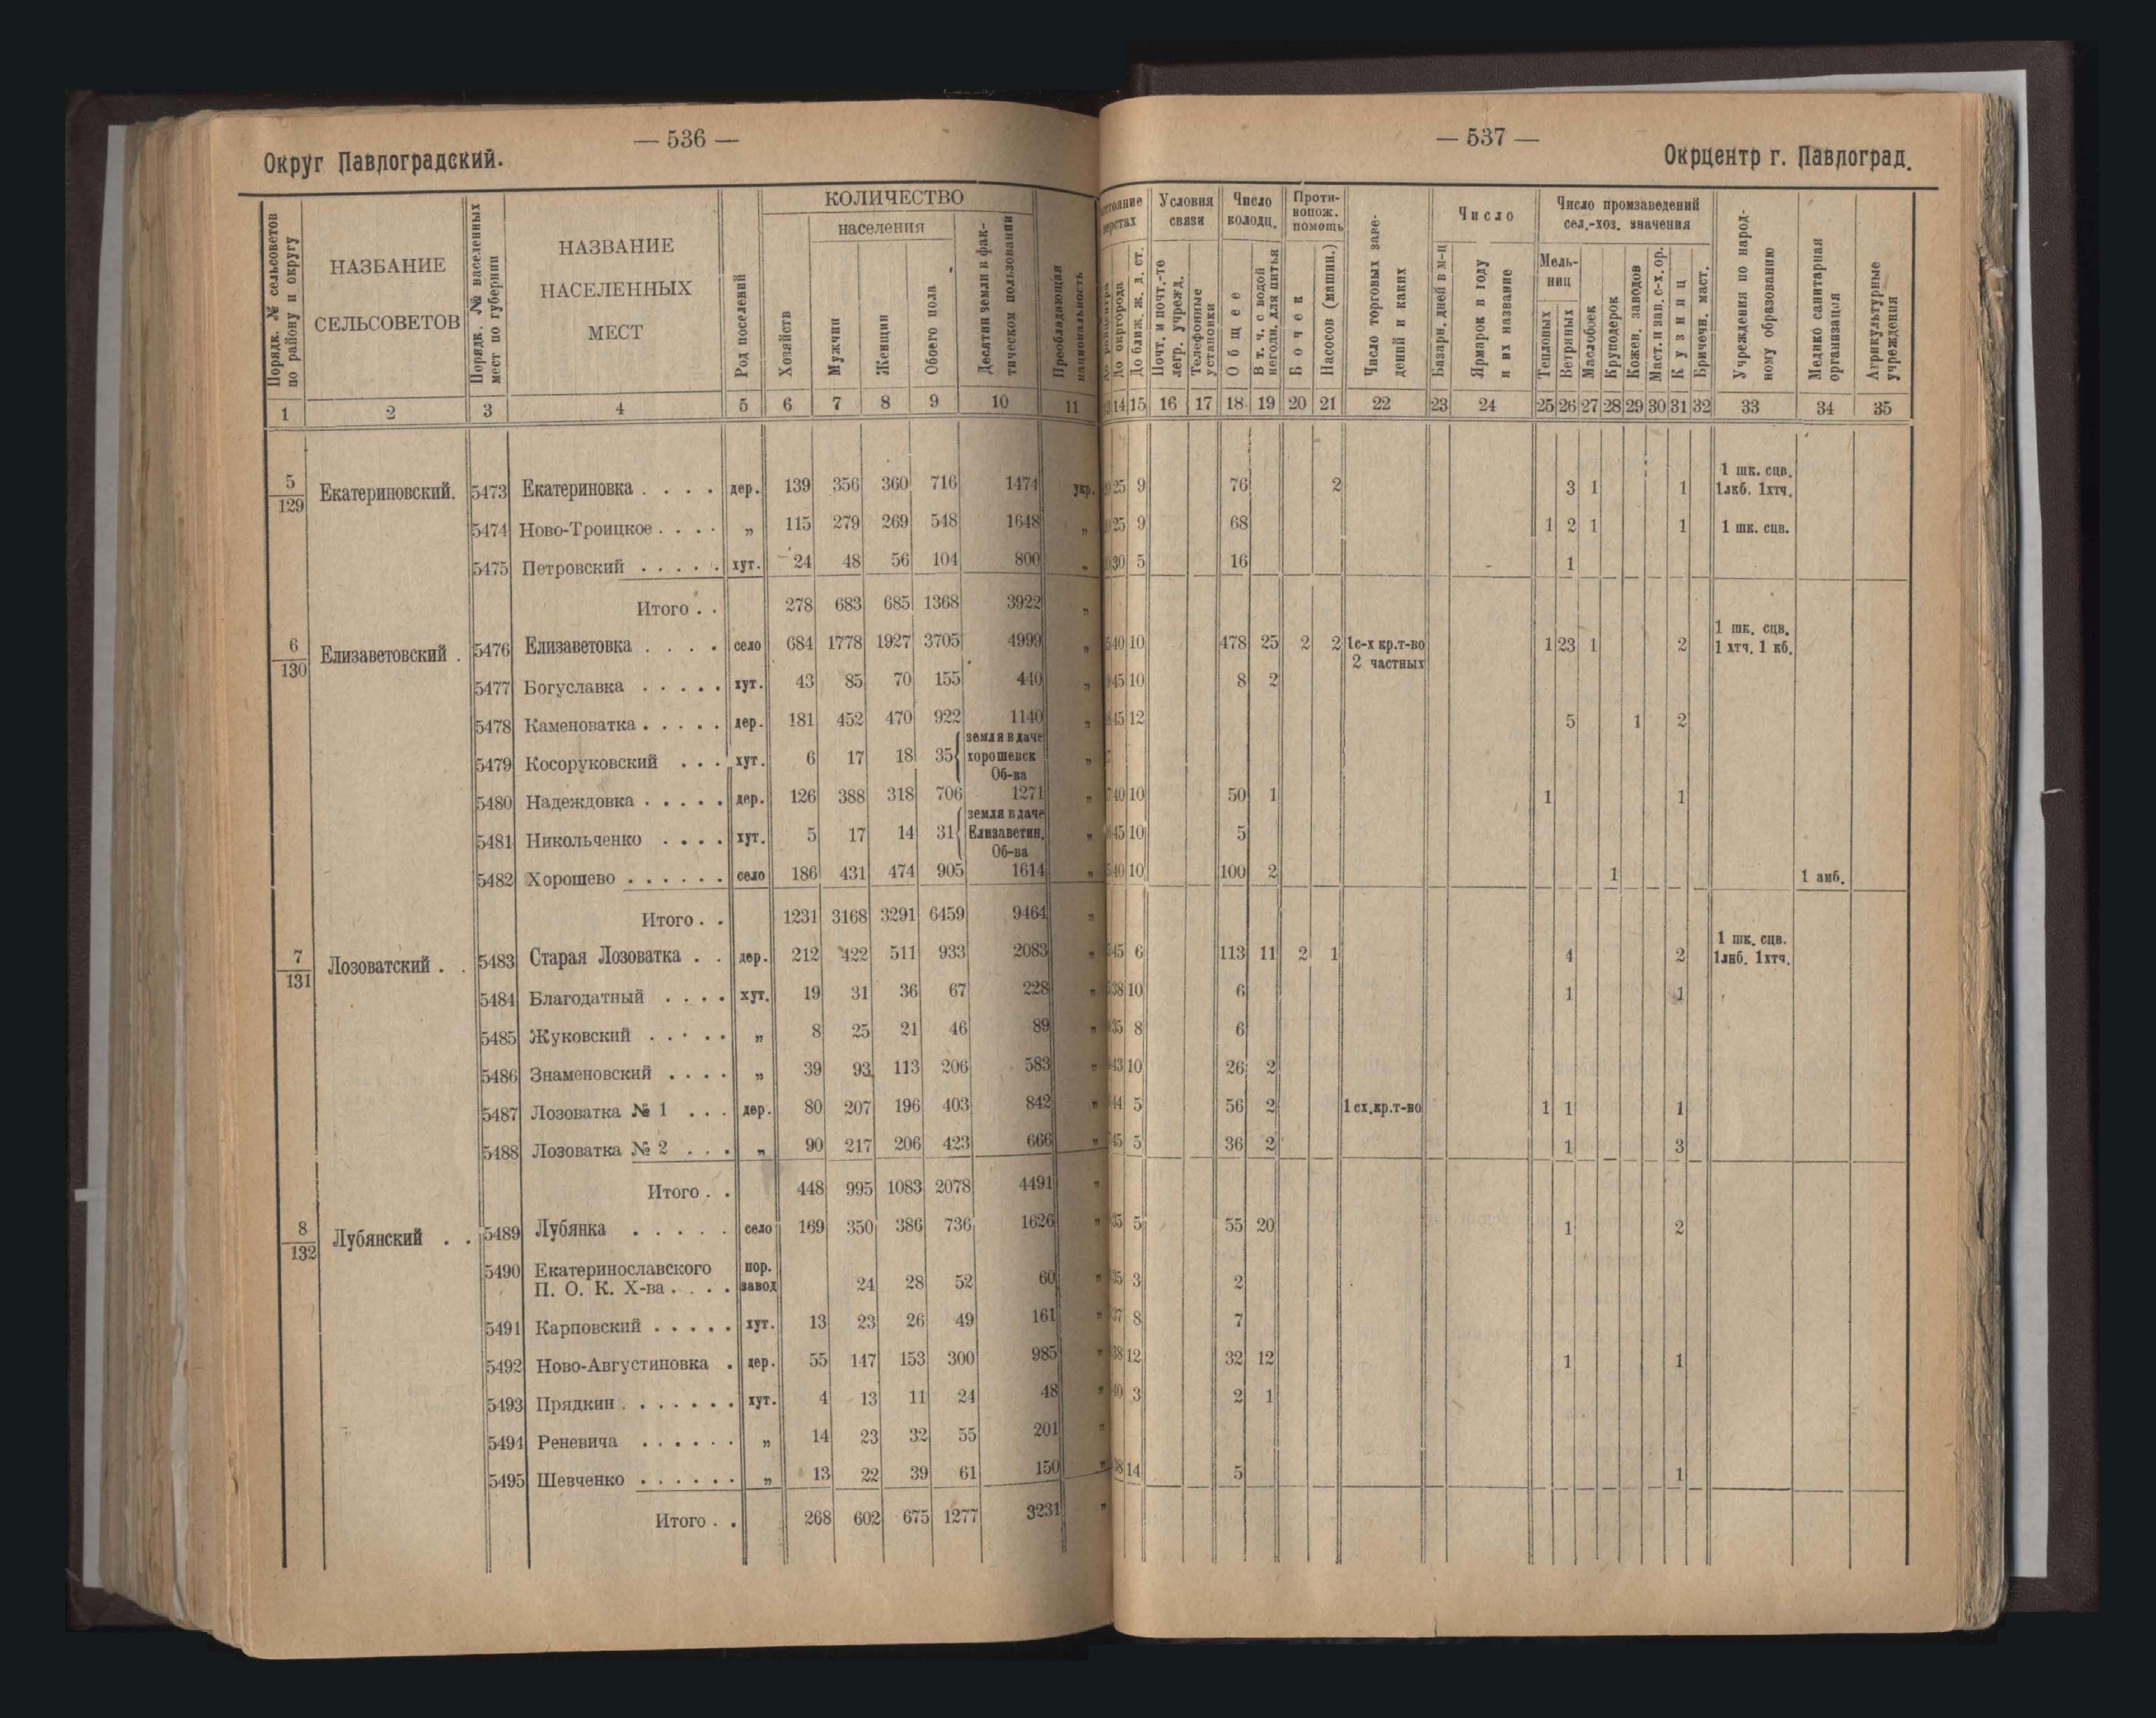 — 536 —
Округ Павлоградский.
Порядк. № сельсоветов по району и округу
НАЗВАНИЕ СЕЛЬСОВЕТОВ
Порядк. № населенных мест по губернии
НАЗВАНИЕ НАСЕЛЕННЫХ МЕСТ
Род поселений
КОЛИЧЕСТВО
Хозяйств
населения
Мужчин
Женщин
Обоего пола
Десятин земли в фактическом пользовании
Преобладающая национальность
1 2 3 4 5 6 7 8 9 10 11
5/129 Екатериновский. 5473 Екатериновка . . . . дер. 139 356 360 716 1474 укр.
5474 Ново-Троицкое . . . . „ 115 279 269 548 1648 „
5475 Петровский . . . . . хут. 24 48 56 104 800 „
Итого . . 278 683 685 1368 3922 „
6/130 Елизаветовский . 5476 Елизаветовка . . . . село 684 1778 1927 3705 4999 „
5477 Богуславка . . . . . хут. 43 85 70 155 440 „
5478 Каменоватка . . . . . дер. 181 452 470 922 1140 „
5479 Косоруковский . . . хут. 6 17 18 35 { земля в даче хорошевск Об-ва „
5480 Надеждовка . . . . . дер. 126 388 318 706 1271 „
5481 Никольченко . . . . хут. 5 17 14 31 { земля в даче Елизаветин. Об-ва „
5482 Хорошево . . . . . . село 186 431 474 905 1614 „
Итого . . 1231 3168 3291 6459 9464 „
7/131 Лозоватский . . 5483 Старая Лозоватка . . дер. 212 422 511 933 2083 „
5484 Благодатный . . . . хут. 19 31 36 67 228 „
5485 Жуковский . . . . . „ 8 25 21 46 89 „
5486 Знаменовский . . . . „ 39 93 113 206 583 „
5487 Лозоватка № 1 . . . дер. 80 207 196 403 842 „
5488 Лозоватка № 2 . . . „ 90 217 206 423 666 „
Итого . . 448 995 1083 2078 4491 „
8/132 Лубянский . . 5489 Лубянка . . . . . село 169 350 386 736 1626 „
5490 Екатеринославского П. О. К. Х-ва . . . . пор. завод 24 28 52 60 „
5491 Карповский . . . . . хут. 13 23 26 49 161 „
5492 Ново-Августиновка . дер. 55 147 153 300 985 „
5493 Прядкин . . . . . . . хут. 4 13 11 24 48 „
5494 Реневича . . . . . . „ 14 23 32 55 201 „
5495 Шевченко . . . . . . „ 13 22 39 61 150 „
Итого . . 268 602 675 1277 3231 „
— 537 —
Окрцентр г. Павлоград.
До окргорода
До ближ. ж. д. ст.
Условия связи
Почт. и почт.-телегр. учрежд.
Телефонные установки
Число колодц.
Общее
В т. ч. с водой негодн. для питья
Противопож. помощь
Бочек
Насосов (машин.)
Число торговых заведений и каких
Число
Базарн. дней в м-ц
Ярмарок в году и их название
Число промзаведений сел.-хоз. значения
Мельниц
Тепловых
Ветряных
Маслобоек
Круподерок
Кожев. заводов
Маст. и зав. с-х. ор.
Кузниц
Бричечн. маст.
Учреждения по народному образованию
Медико санитарная организация
Агрикультурные учреждения
14 15 16 17 18 19 20 21 22 23 24 25 26 27 28 29 30 31 32 33 34 35
25 9 76 2 3 1 1 1 шк. сцв. 1лкб. 1хтч.
25 9 68 1 2 1 1 1 шк. сцв.
30 5 16 1
40 10 478 25 2 2 1с-х кр.т-во 2 частных 1 23 1 2 1 шк. сцв. 1 хтч. 1 кб.
45 10 8 2
45 12 5 1 2
40 10 50 1 1 1
45 10 5
40 10 100 2 1 1 анб.
45 6 113 11 2 1 4 2 1 шк. сцв. 1лнб. 1хтч.
38 10 6 1 1
35 8 6
43 10 26 2
44 5 56 2 1 сх.кр.т-во 1 1 1
45 5 36 2 1 3
35 5 55 20 1 2
35 3 2
37 8 7
38 12 32 12 1 1
40 3 2 1
38 14 5 1